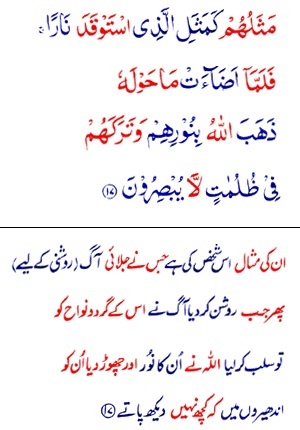 مَثَلُهُمْ كَمَثَلِ الَّذِی اسْتَوْقَدَ نَارًا ۚ
فَلَمَّاۤ اَضَآءَتْ مَا حَوْلَهٗ
ذَهَبَ اللّٰهُ بِنُوْرِهِمْ وَتَرَكَهُمْ
فِیْ ظُلُمٰتٍ لَّا یُبْصِرُوْنَ ﴿۱۷﴾
ان کی مثال اس شخص کی ہے جس نے جلائی آگ (روشنی کے لیے)
پھر جب روشن کر دیا آگ نے اس کے گرد و نواح کو
تو سلب کر لیا اللہ نے اُن کا نُور اور چھوڑ دیا اُن کو
اندھیروں میں کہ کچھ نہیں دیکھ پاتے ﴿۱۷﴾